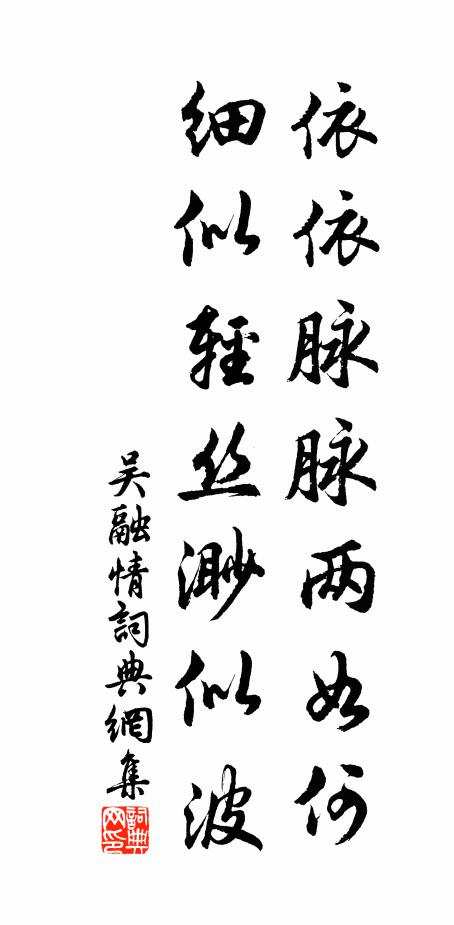 依依脉脉两如何
细似輕丝渺似波
吴融情詞典網集
詞典网印